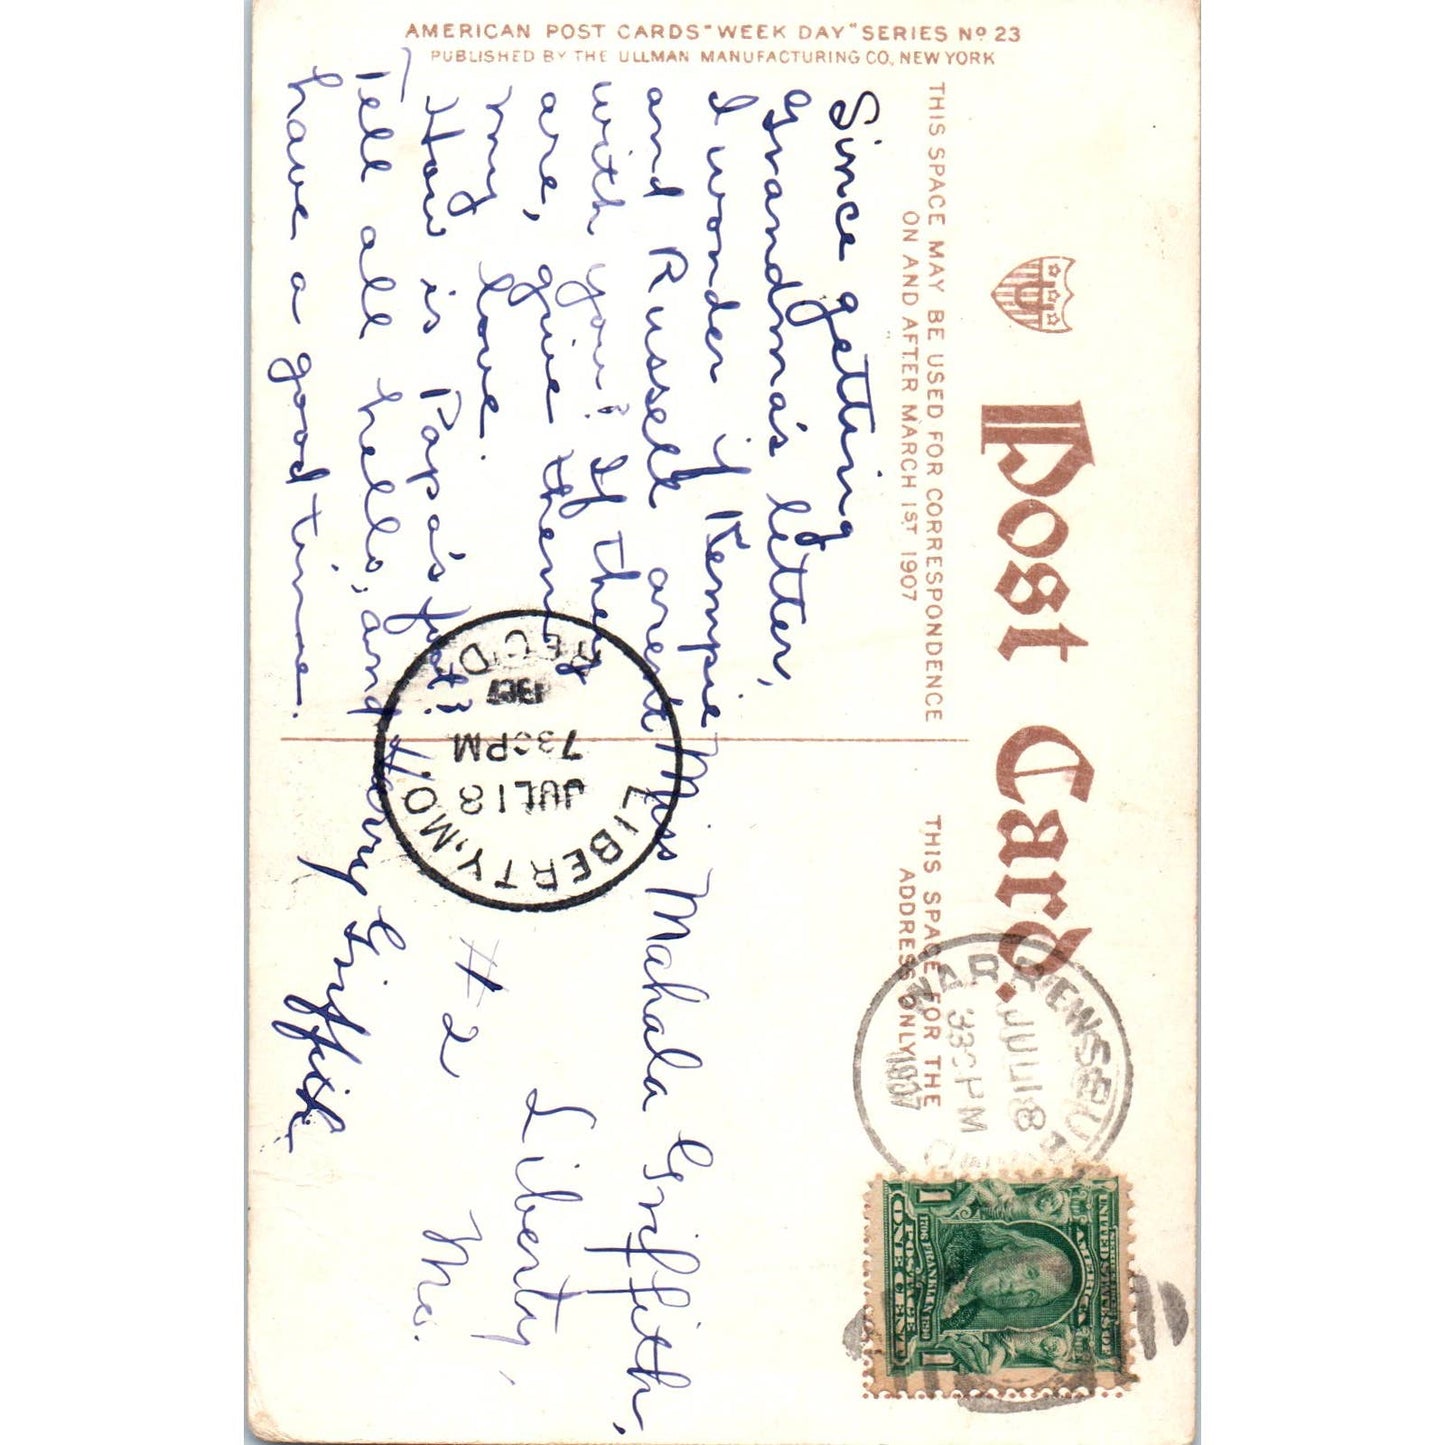 AMERICAN POST CARDS "WEEK DAY" SERIES Nº 23
PUBLISHED BY THE ULLMAN MANUFACTURING CO., NEW YORK
Post Card.
THIS SPACE MAY BE USED FOR CORRESPONDENCE
ON AND AFTER MARCH 1ST 1907
Since getting
Grandma's letter,
I wonder if Kempie
and Russell arent
with you? If they
are, give them
my love.
How is Papa's foot?
Tell all hello, and
have a good time.
Griffith
THIS SPACE FOR THE
ADDRESS ONLY
Miss Mahala Griffith,
Liberty,
Mo.
#2
LIBERTY, MO.
JUL 18
730PM
1907
REC'D.
WARRENSBURG
JUL 18
330PM
1907
UNITED STATES OF AMERICA
1706 FRANKLIN 1790
POSTAGE
1 ONE CENT 1